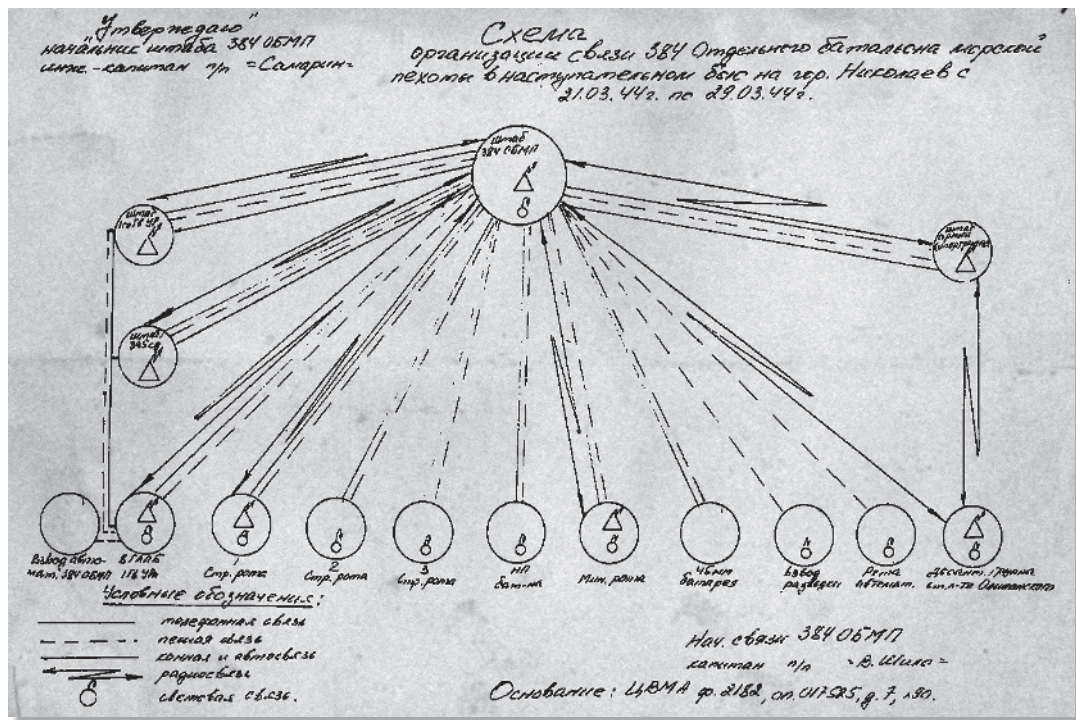 "Утверждаю"
начальник штаба 384 ОБМП
инж-капитан п/п =Самарин=
Схема
организации связи 384 Отдельного батальона морской
пехоты в наступательном бою на гор. Николаев с
21.03.44г. по 29.03.44г.
Штаб
384 ОБМП
штаб
штаб
штаб
Взвод авто-
мат. 384 ОБМП
1
Стр. рота
2
Стр. рота
3
Стр. рота
НП
бат-на
Мин. рота
45мм
батарея
Взвод
разведки
Рота
автомат.
Десант. группа
ст. л-та Ольшанского
Условные обозначения:
телефонная связь
пешая связь
конная и автосвязь
радиосвязь
световая связь.
Нач. связи 384 ОБМП
капитан п/п =В. Шило=
Основание: ЦВМА ф. 2182, оп. 017525, д. 7, л 90.